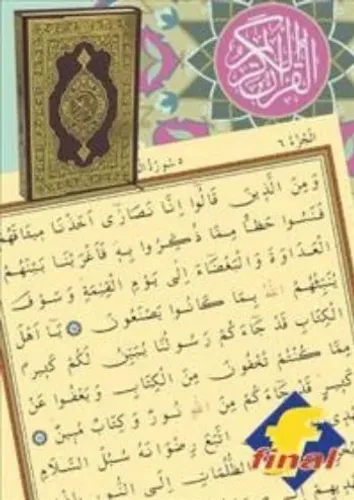 القرآن الكريم
الجزء ٦
٥ سورة
وَمِنَ الَّذِينَ قَالُوا إِنَّا نَصَارَىٰ أَخَذْنَا مِيثَاقَهُمْ
فَنَسُوا حَظًّا مِمَّا ذُكِّرُوا بِهِ فَأَغْرَيْنَا بَيْنَهُمُ
الْعَدَاوَةَ وَالْبَغْضَاءَ إِلَى يَوْمِ الْقِيٰمَةِ وَسَوْفَ
يُنَبِّئُهُمُ اللَّهُ بِمَا كَانُوا يَصْنَعُونَ يَا أَهْلَ
الْكِتَابِ قَدْ جَاءَكُمْ رَسُولُنَا يُبَيِّنُ لَكُمْ كَثِيرًا
مِمَّا كُنْتُمْ تُخْفُونَ مِنَ الْكِتَابِ وَيَعْفُوا عَنْ
كَثِيرٍ قَدْ جَاءَكُمْ مِنَ اللَّهِ نُورٌ وَكِتَابٌ مُبِينٌ
اتَّبَعَ رِضْوَانَهُ سُبُلَ السَّلَامِ
الظُّلُمَاتِ إِلَى النُّورِ
final